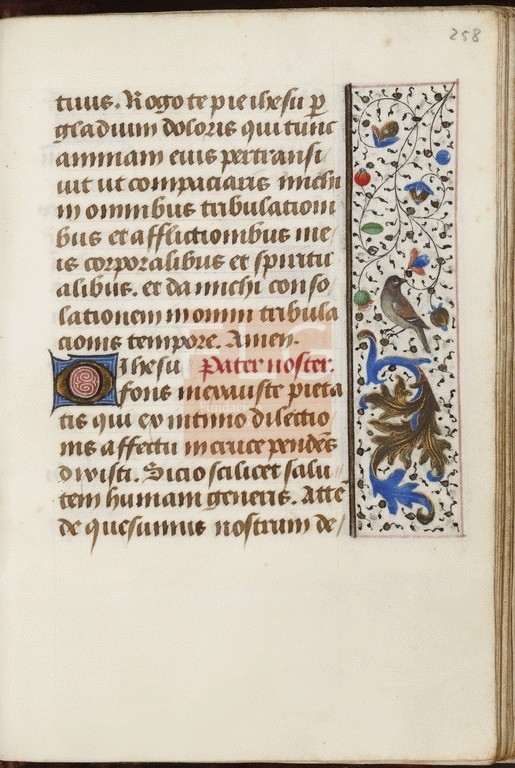 258
tuus. Rogo te pie ihesu p̱
gladium doloris qui tunc
animam eius pertransi
uit ut compaciaris michi
in omnibus tribulationi
bus et afflictionibus me
is corporalibus et spiritu
alibus. et da michi conso
lationem in omni tribula
cionis tempore. Amen.
O Ihesu Pater noster.
fons inexauste pieta
tis qui ex intimo dilectio
nis affectu in cruce pendēs
dixisti. Sicio scilicet salu
tem humani generis. Attē
de quesumus nostrum de